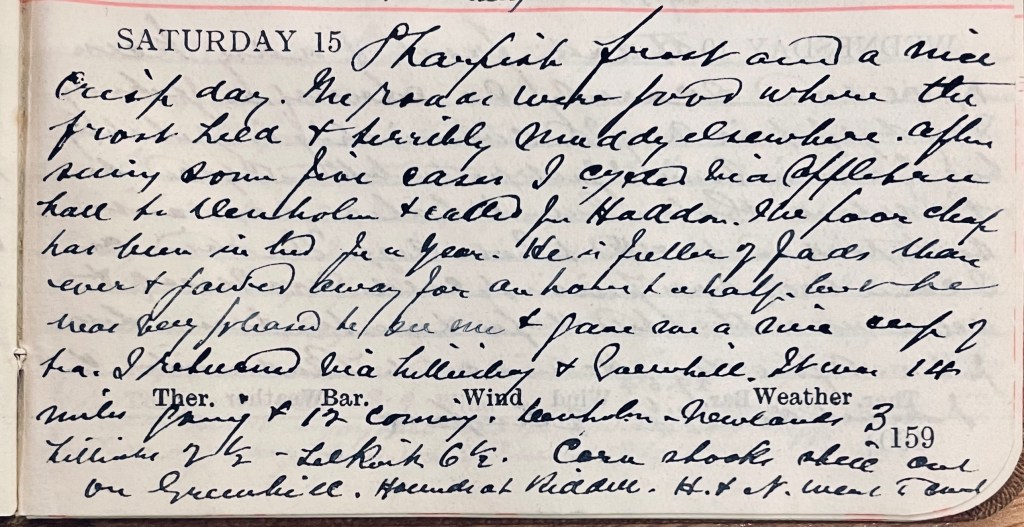 SATURDAY 15 Sharpish frost and a nice
crisp day. The roads were good where the
frost held & terribly muddy elsewhere. After
seeing some five cases I cycled via Appletree
hall to Denholm & called for Haddon. The poor chap
has been in bed for a year. He is fuller of fads than
ever & jawed away for an hour & a half. but he
was very pleased to see me & gave me a nice cup of
tea. I returned via Lilliesleaf & Greenhill. It was 14
Ther. Bar. Wind Weather
miles going & 12 coming. Denholm - Newlands 3
159
Lillies 2½ - Selkirk 6½. Corn stooks still out
on Greenhill. Hounds at Riddell. H. & N. went